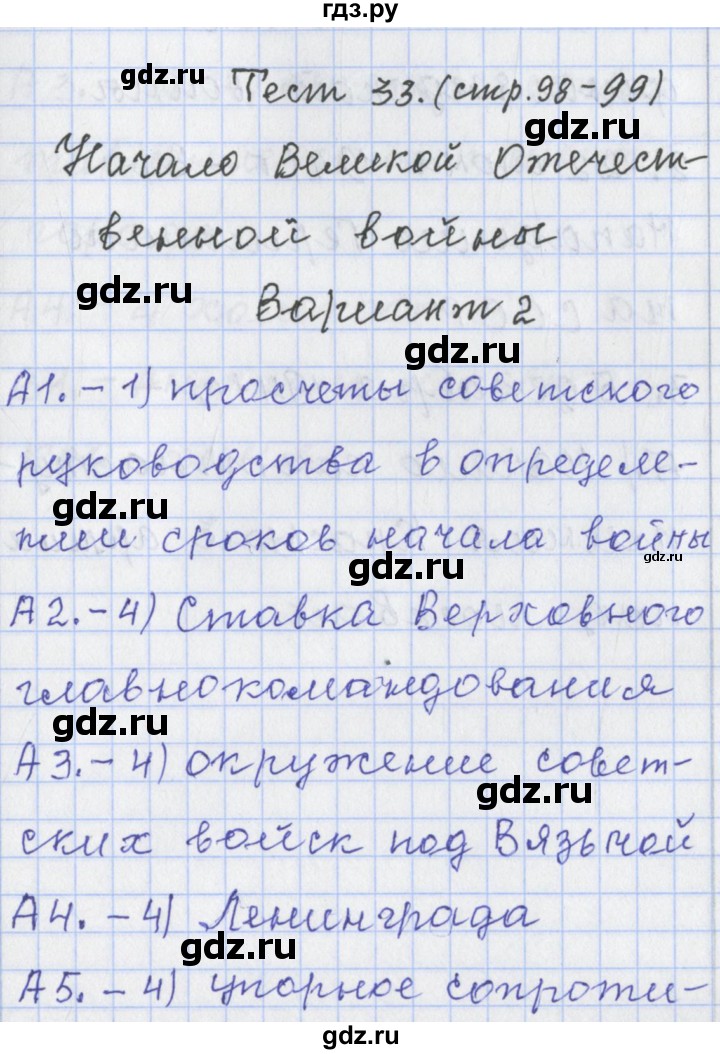 гдз.ру
gdz.ru
Тест 33. (стр. 98-99)
gdz.ru
Начало Великой Отечест-
венной войны
gdz.ru
Вариант 2
gdz.ru
А1. - 1) просчеты советского
руководства в определе-
gdz.ru
нии сроков начала войны
gdz.ru
gdz.ru
А2. - 4) Ставка Верховного
главнокомандования
gdz.ru
А3. - 4) окружение совет-
gdz.ru
ских войск под Вязьмой
А4. - 4) Ленинграда
gdz.ru
А5. - 4) упорное сопроти-
gdz.ru
gdz.ru